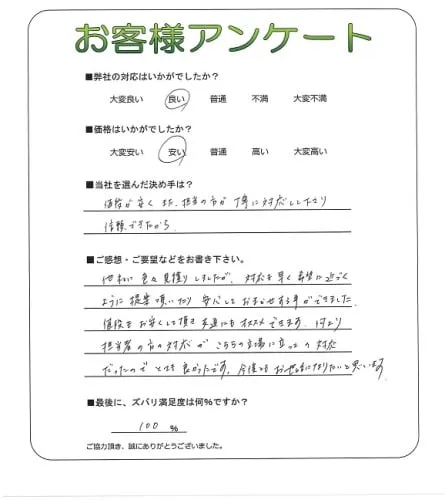 お客様アンケート
■弊社の対応はいかがでしたか？
大変良い 良い 普通 不満 大変不満
■価格はいかがでしたか？
大変安い 安い 普通 高い 大変高い
■当社を選んだ決め手は？
値段が安く また、担当の方が丁寧に対応して下さり
信頼できたから
■ご感想・ご要望などをお書き下さい。
他社に色々見積りしましたが、対応も早く希望に近づく
ように提案頂いたり 安心しておまかせする事ができました。
値段もお安くして頂き友達にもオススメできます。何より
担当者の方の対応がこちらの立場に立っての対応
だったのでとても良かったです。今後ともお世話になりたいと思います。
■最後に、ズバリ満足度は何%ですか？
100 %
ご協力頂き、誠にありがとうございました。